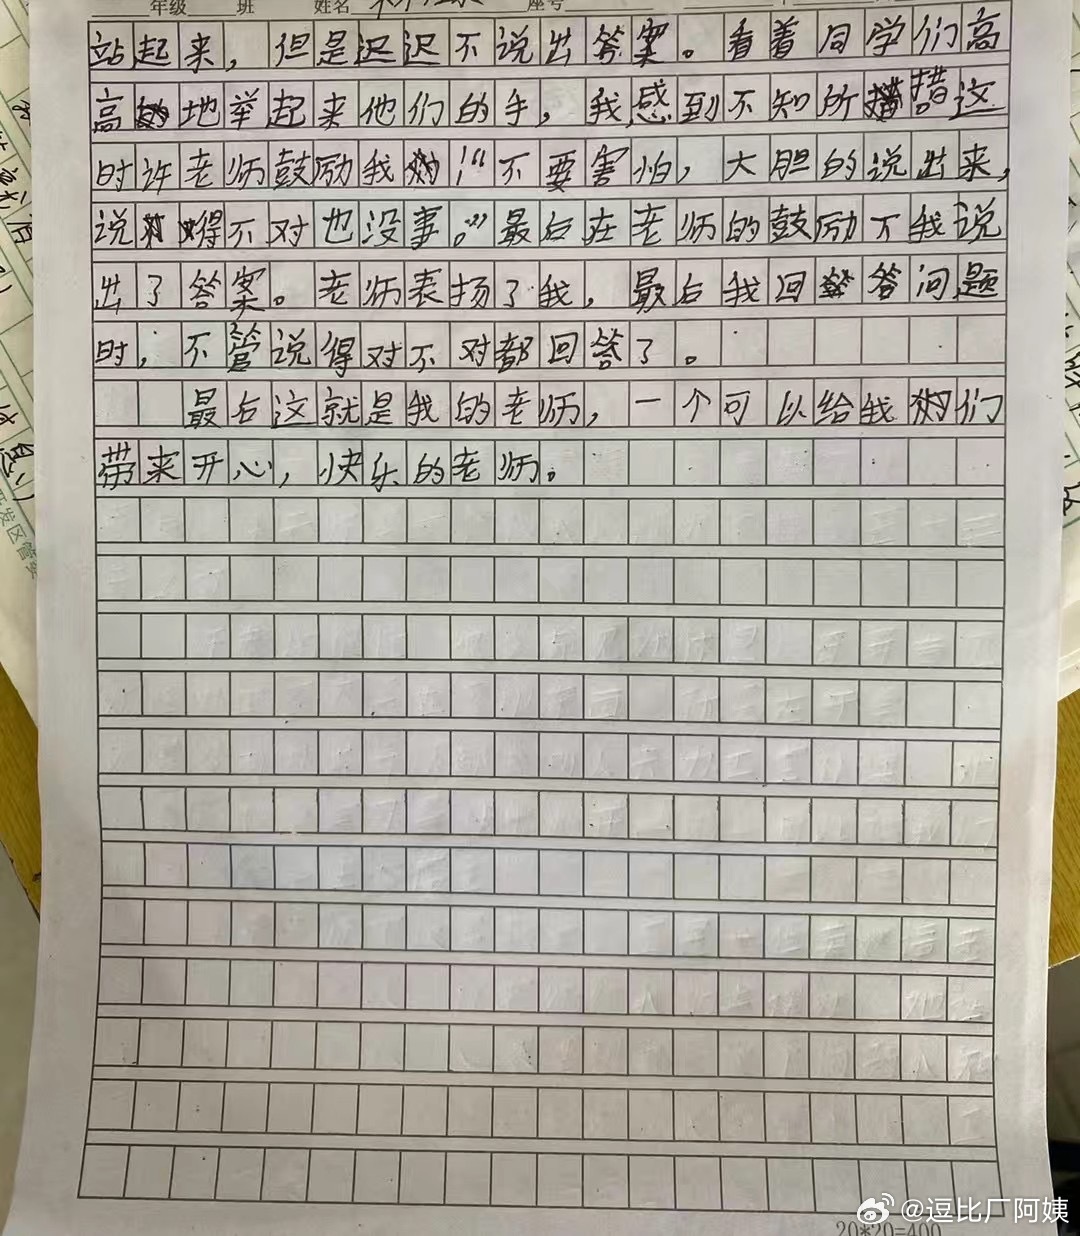 年级 班 姓名 座号
站起来，但是迟迟不说出答案。看着同学们高
高地举起来他们的手，我感到不知所措这
时许老师鼓励我！“不要害怕，大胆的说出来，
说得不对也没事。”最后在老师的鼓励下我说
出了答案。老师表扬了我，最后我回答问题
时，不管说得对不对都回答了。
最后这就是我的老师，一个可以给我们
带来开心，快乐的老师。
20*20=400
@逗比厂阿姨